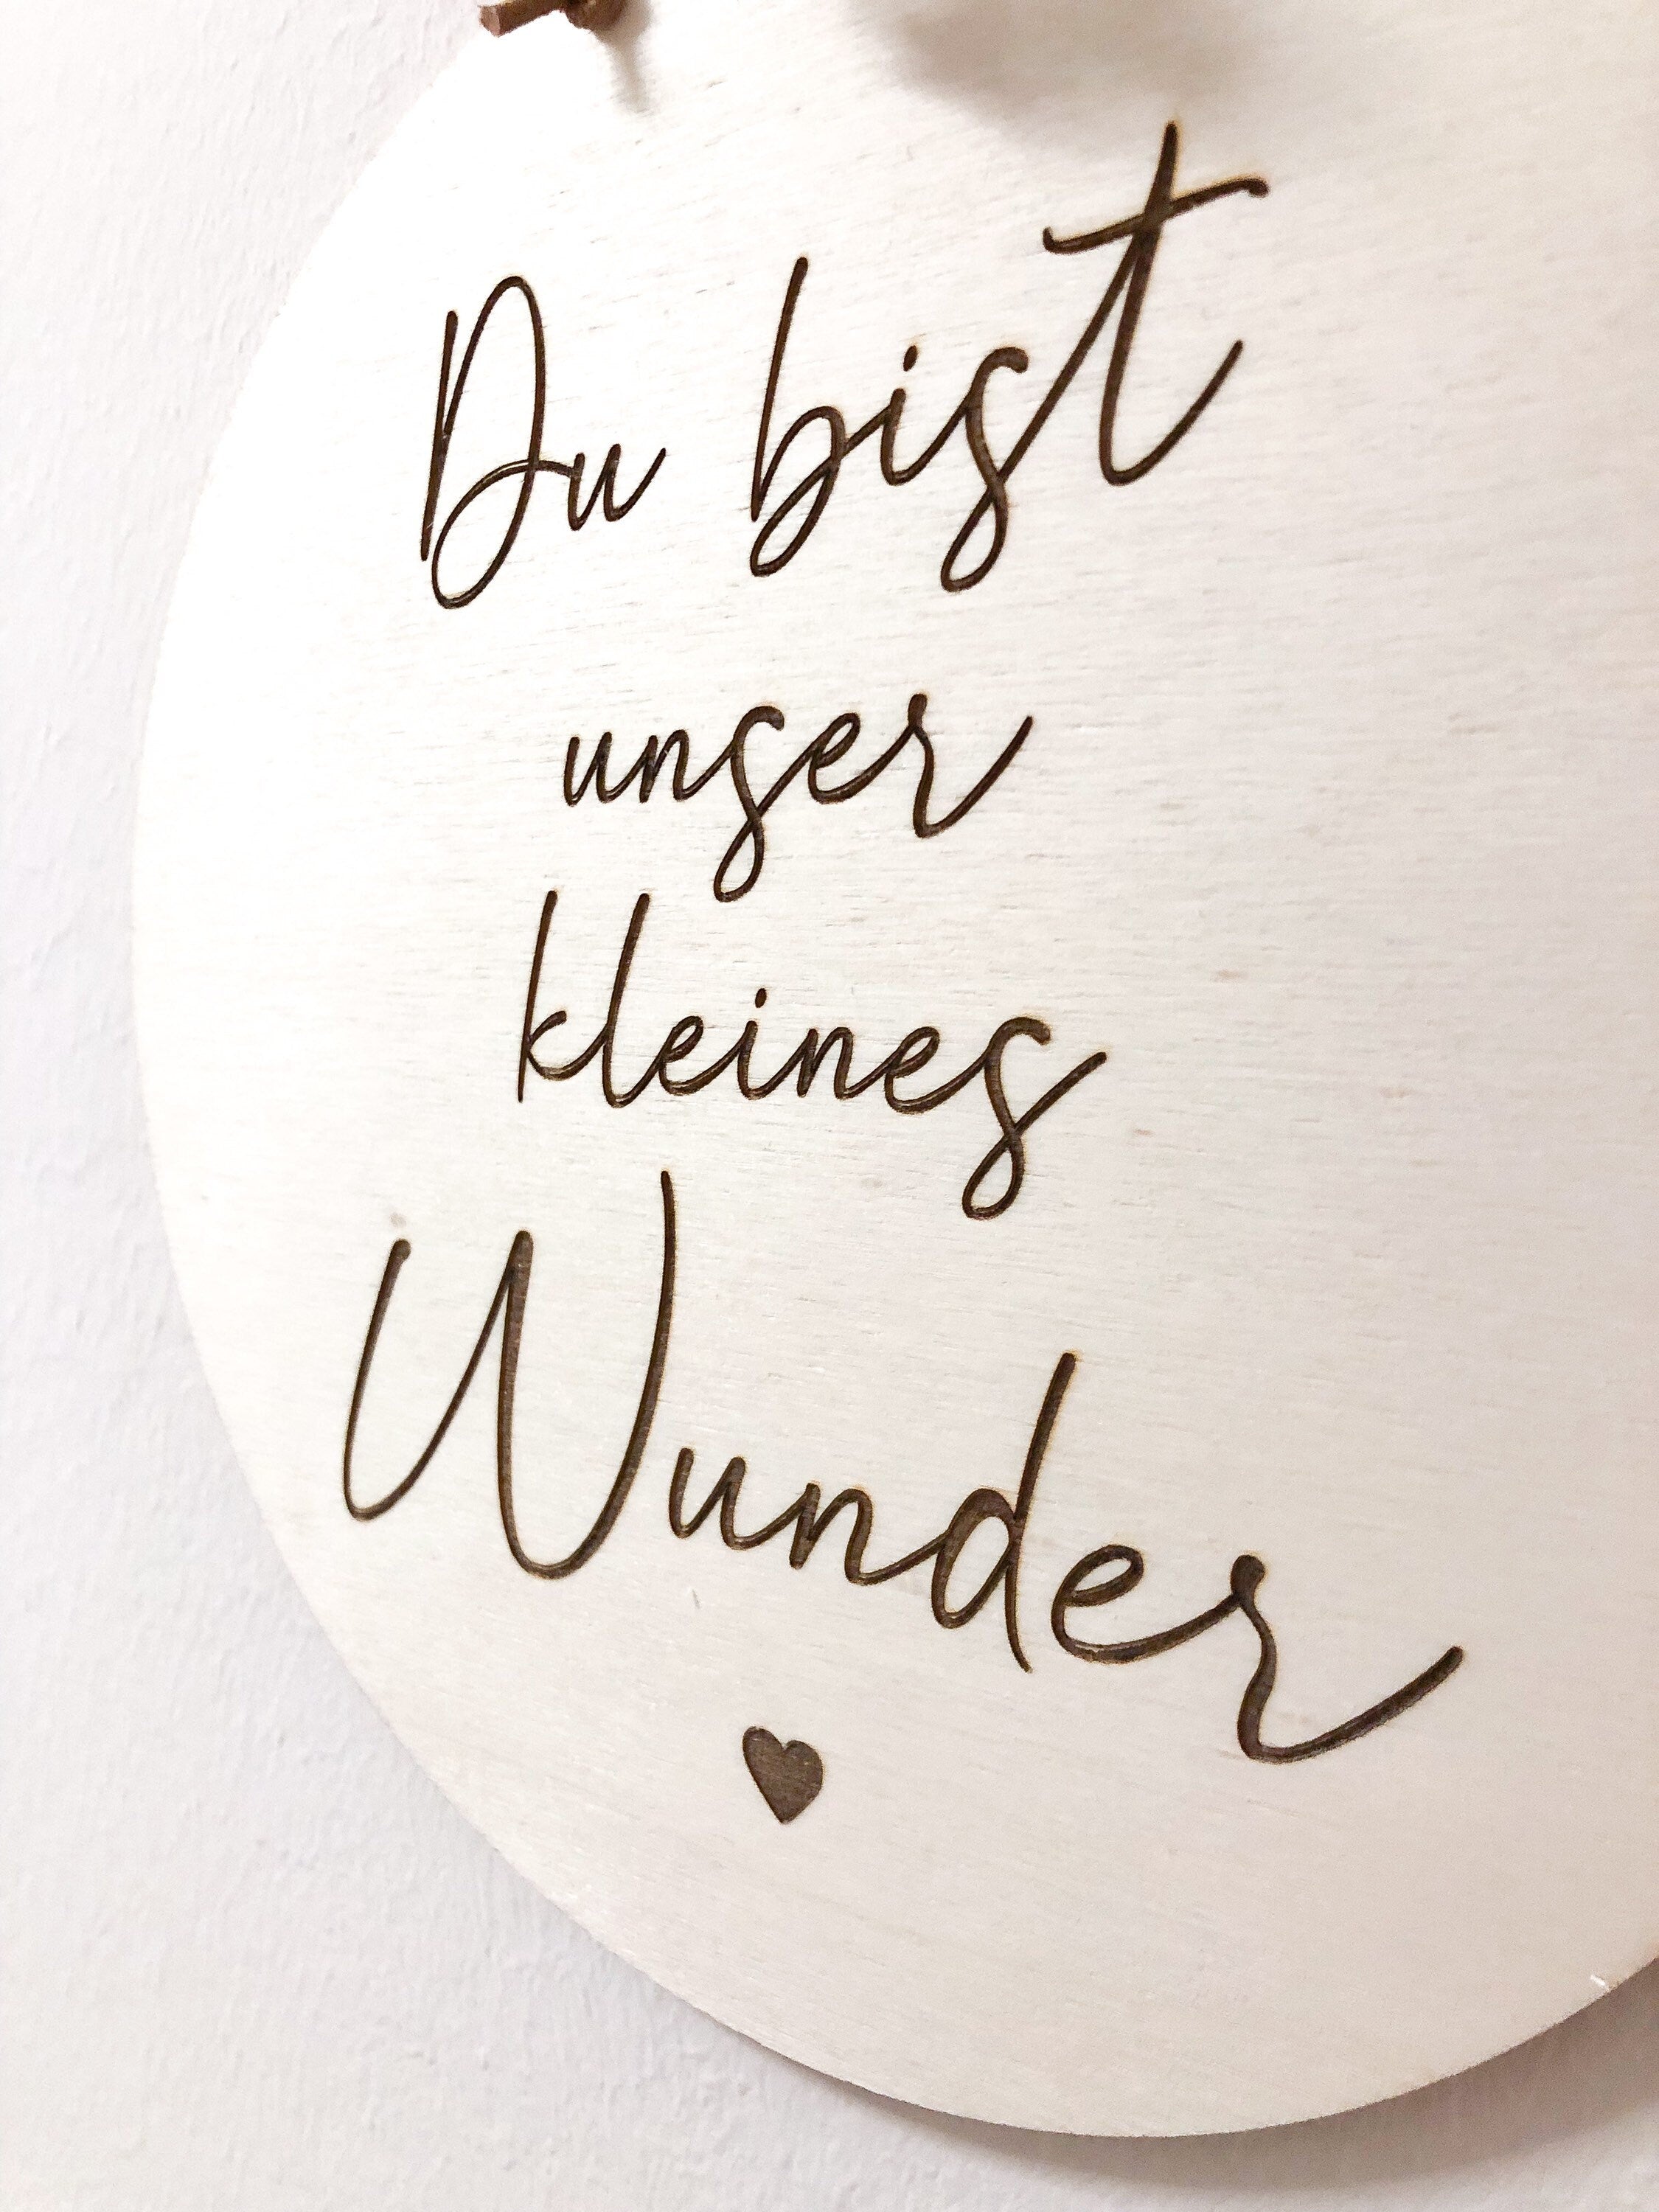 Du bist
unser
kleines
Wunder